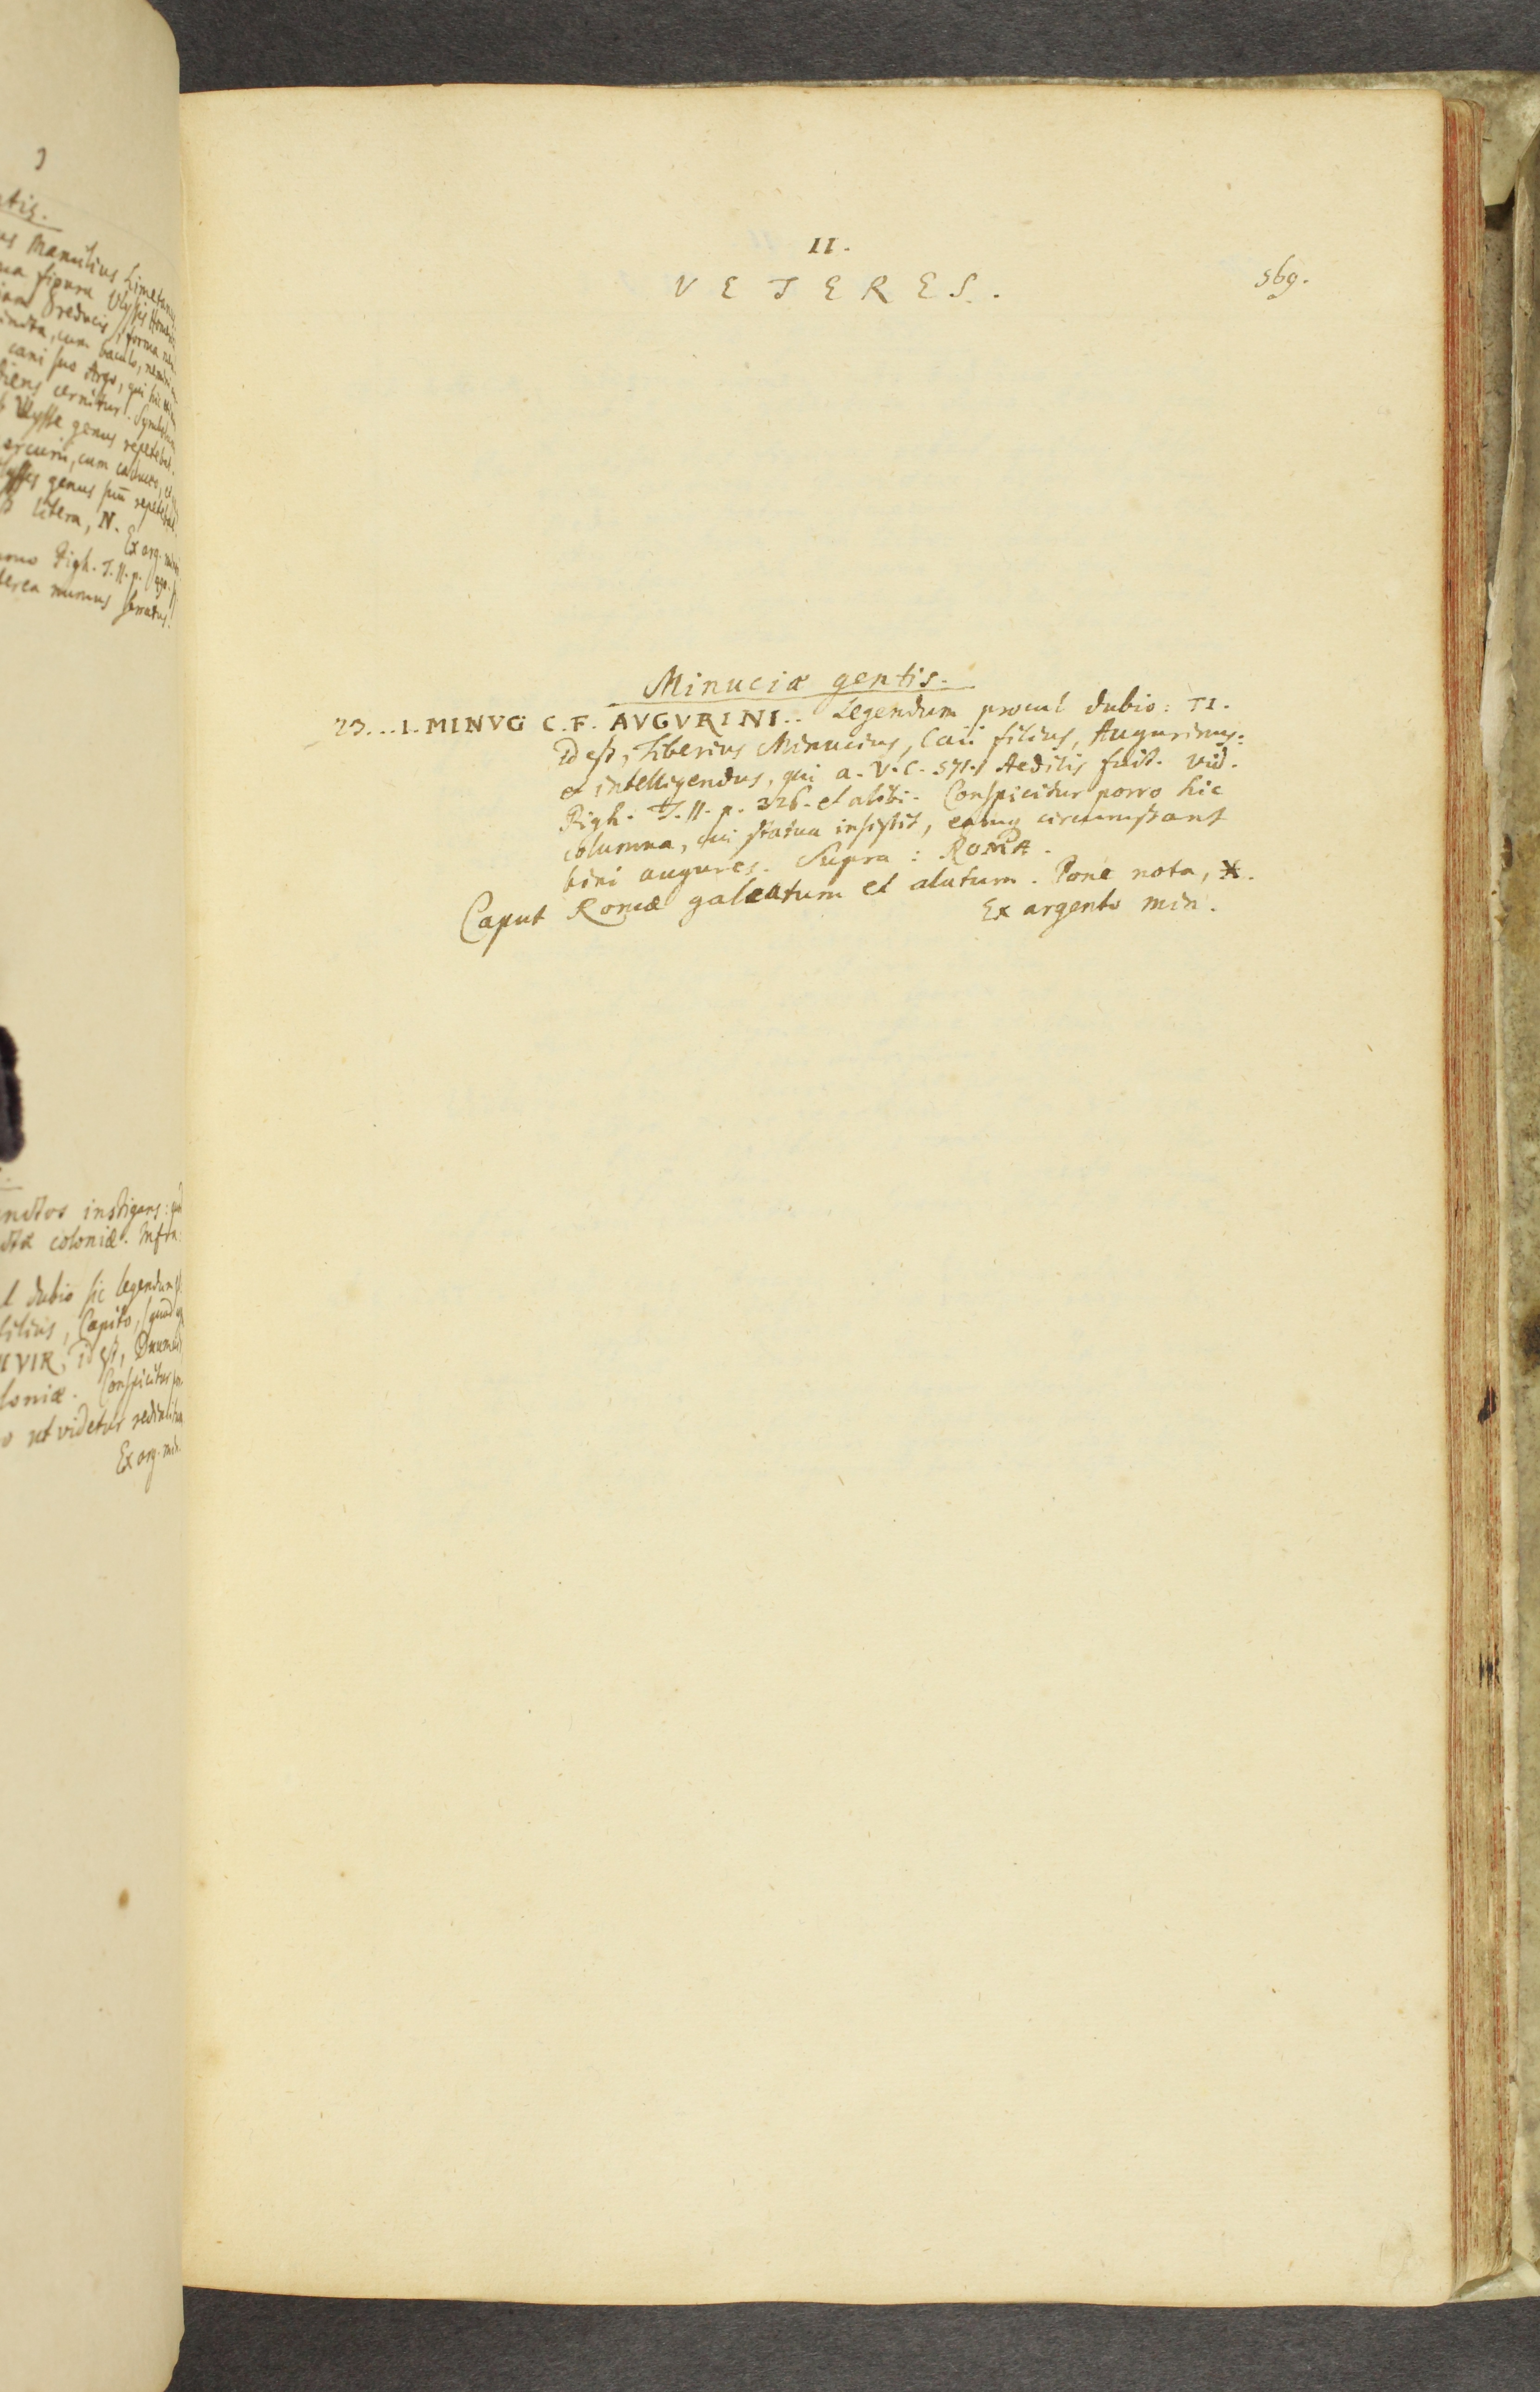 II.
VETERES.
569.
Minuciæ gentis.
23...I. MINVG C.F. AVGVRINI.. Legendum procul dubio: TI.
Id est, Tiberius Minucius, Caii filius, Augurinus:
et intelligendus, qui a. V.C. 571. Aedilis fuit. Vid.
Pigh. T. II. p. 326. et alibi. Conspicitur porro hic
columna, cui statua insistit, eamq circumstant
bini augures. Supra: ROMA.
Caput Romæ galeatum et alatum. Pone nota, X.
Ex argento min.
Manilius Limetanus
figura Ulyssis
reducis, forma
cum baculo,
cani suo Argo, qui hic
cernitur. Symbolum
Ulysse genus repetebat.
cum caduceo, et
genus suū repetebat.
litera, N. Ex arg. min
Pigh. T. II. p.
numus serratus.
instigans:
coloniæ. Infra:
dubio sic legendum
Capito, quod
VIR, id est, Duum
Conspicitur
ut videtur
Ex arg. min.